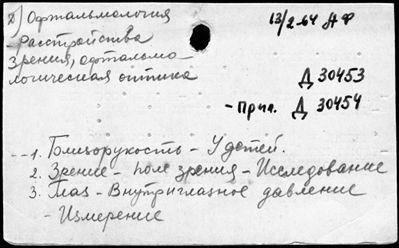 2) Офтальмология
расстройства
зрения, офтальмо
логическая оптика
13/2-64 АФ
Д 30453
- Прил. Д 30454
1. Близорукость - У детей.
2. Зрение - поле зрения - Исследование
3. Глаз - Внутриглазное давление
- Измерение